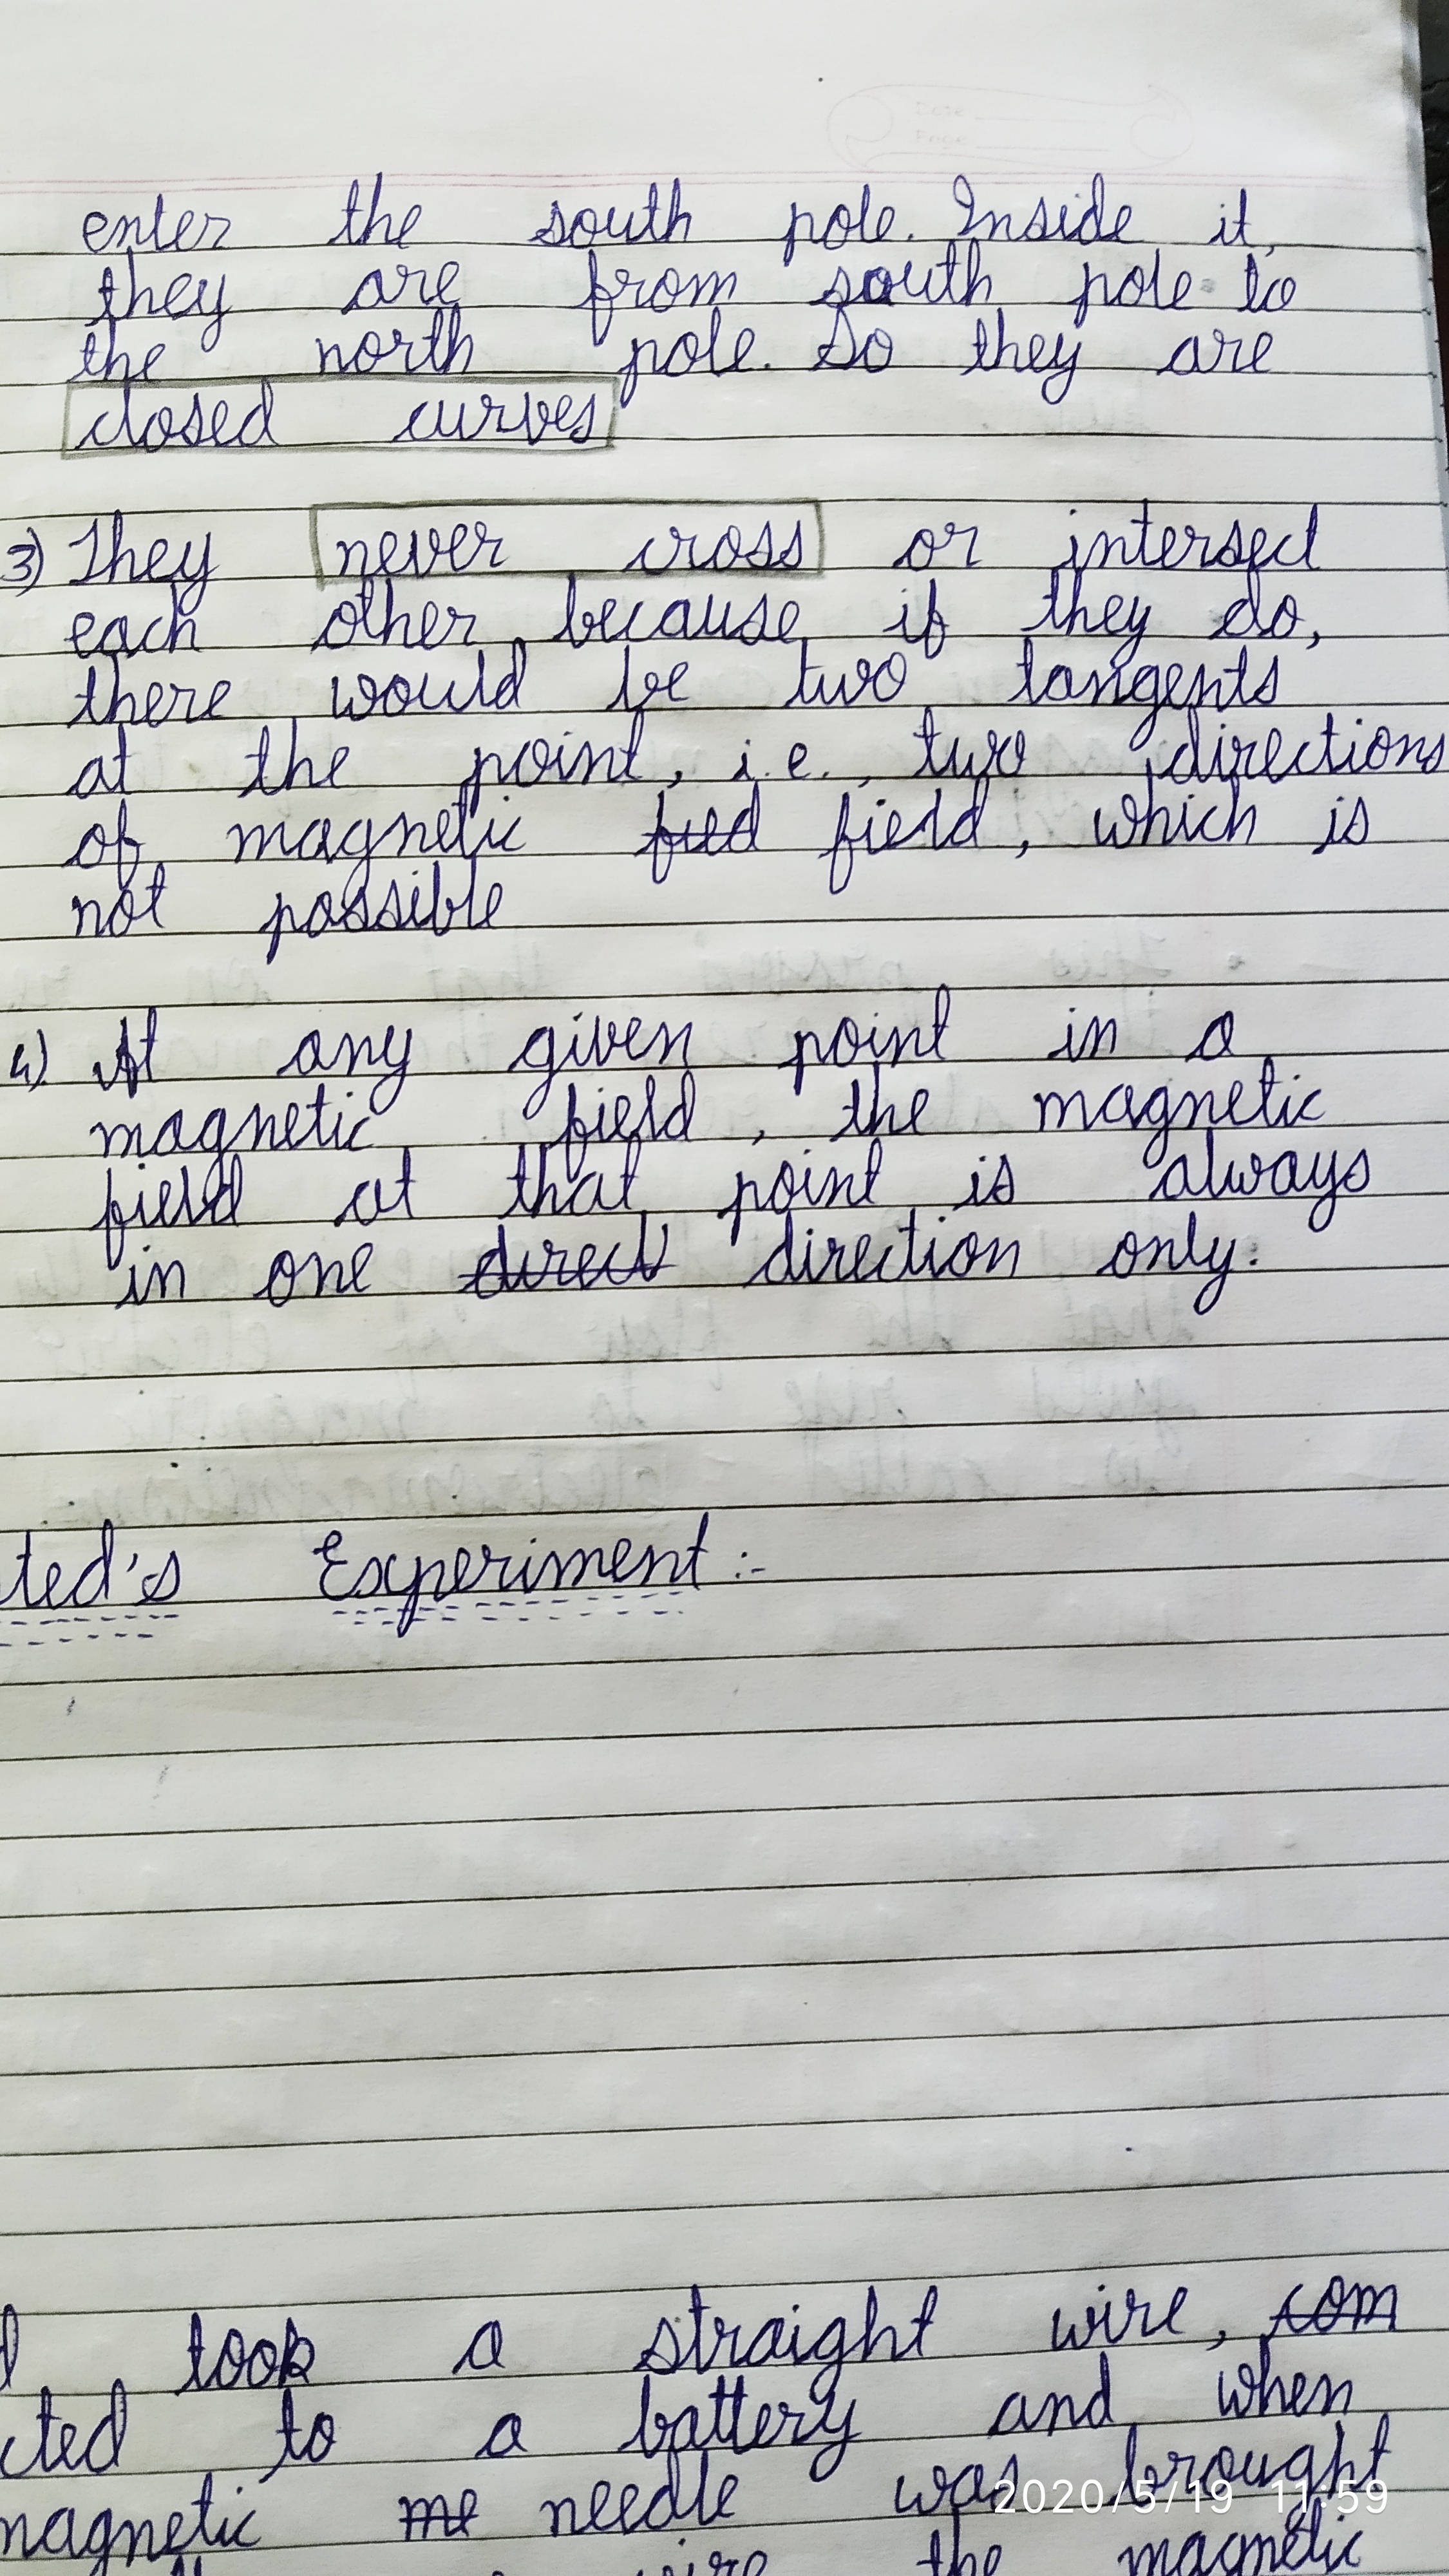 Date
Page
enter the south pole. Inside it,
they are from south pole to
the north pole. So they are
closed curves
3) They never cross or intersect
each other because if they do,
there would be two tangents
at the point, i.e., two directions
of magnetic fied field, which is
not possible
4). At any given point in a
magnetic field, the magnetic
field at that point is always
in one direct direction only.
ted's Experiment :-
d took a straight wire, com
cted to a battery and when
magnetic me needle was brought
wire the magnetic
2020/5/19 11:59